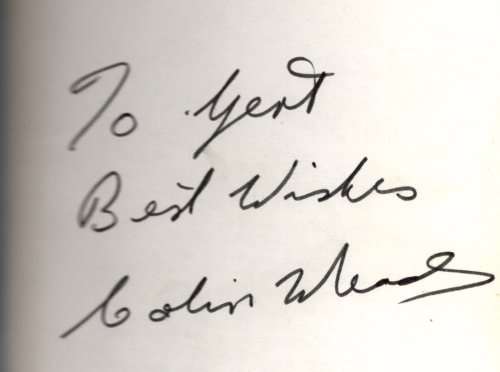 To Gert
Best Wishes
Colin Meads